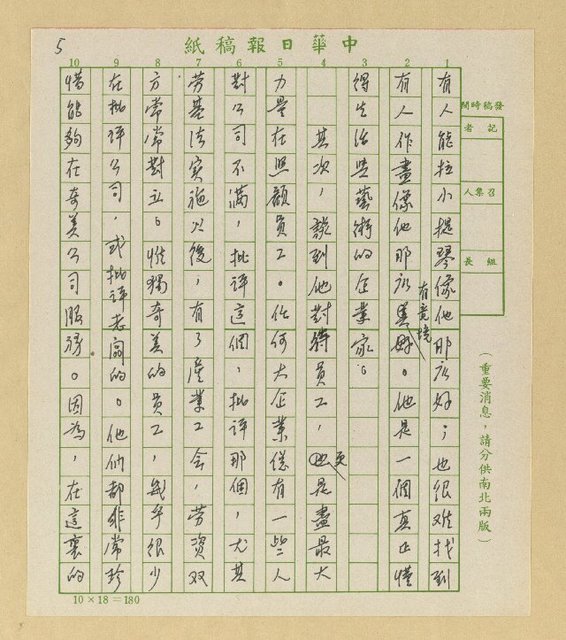 5
中華日報稿紙
1
2
3
4
5
6
7
8
9
10
有人能拉小提琴像他那麼好；也很難找到
有人作畫像他那麼有意境。他是一個真正懂
得生活與藝術的企業家。
其次，談到他對待員工，更是盡最大
力量在照顧員工。任何大企業總有一些人
對公司不滿，批評這個，批評那個，尤其
勞基法實施以後，有了產業工會，勞資双
方常常對立。惟獨奇美的員工，幾乎很少
在批評公司，或批評老闆的。他們都非常珍
惜能夠在奇美公司服務。因為，在這裏的
發稿時間
記者
召集人
組長
（重要消息，請分供南北兩版）
10×18＝180